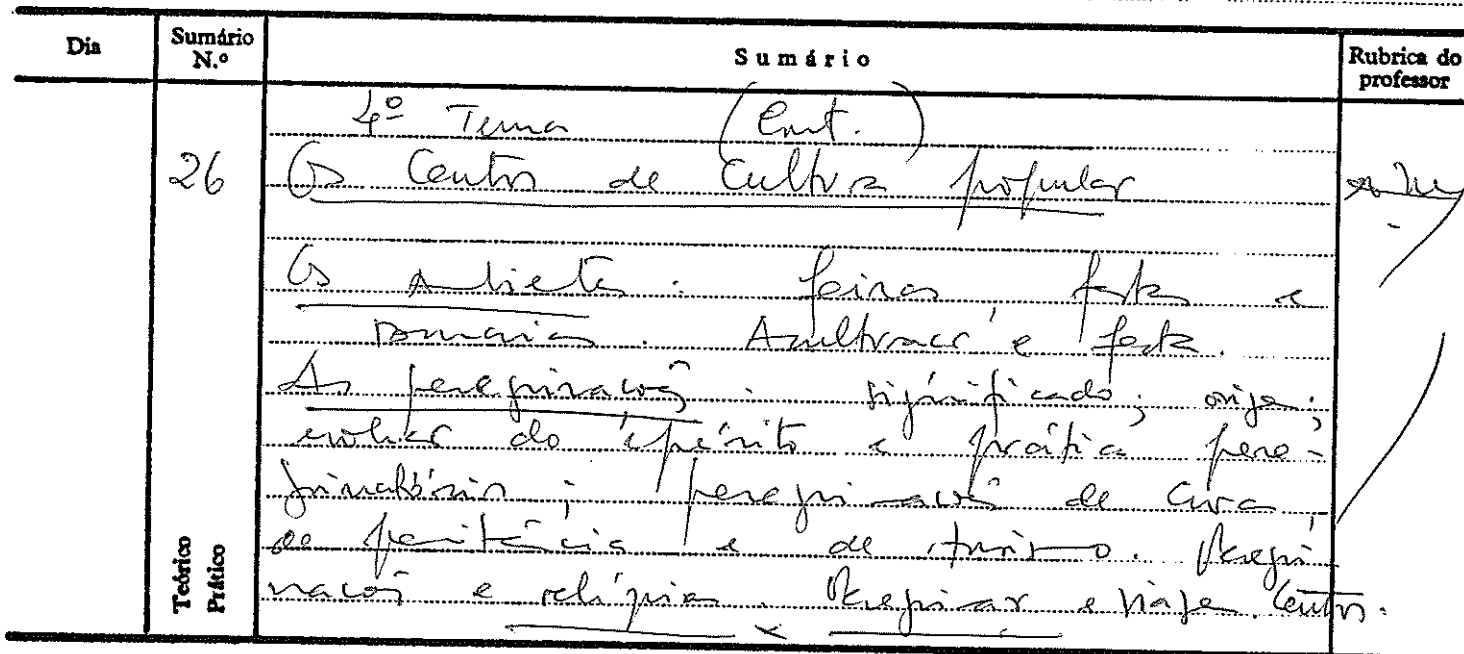 Dia
Sumário N.º
Sumário
Rubrica do professor
4º Tema (Cont.)
26
Os Centros de Cultura popular
Os Ambientes: feiras, festas e
romarias. Aculturação e festa.
As peregrinações: significado; origem;
evolução do espírito e prática pere-
grinatórios; peregrinações de cura,
de penitência e de turismo. Peregri
nações e relíquias. Peregrinar e viajar. Centros.
Teórico
Prático